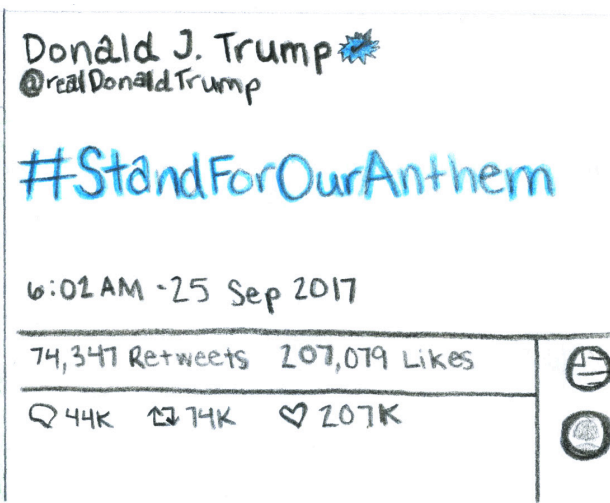 Donald J. Trump
@realDonaldTrump
#StandForOurAnthem
6:02 AM - 25 Sep 2017
74,347 Retweets 207,079 Likes
44K 74K 207K